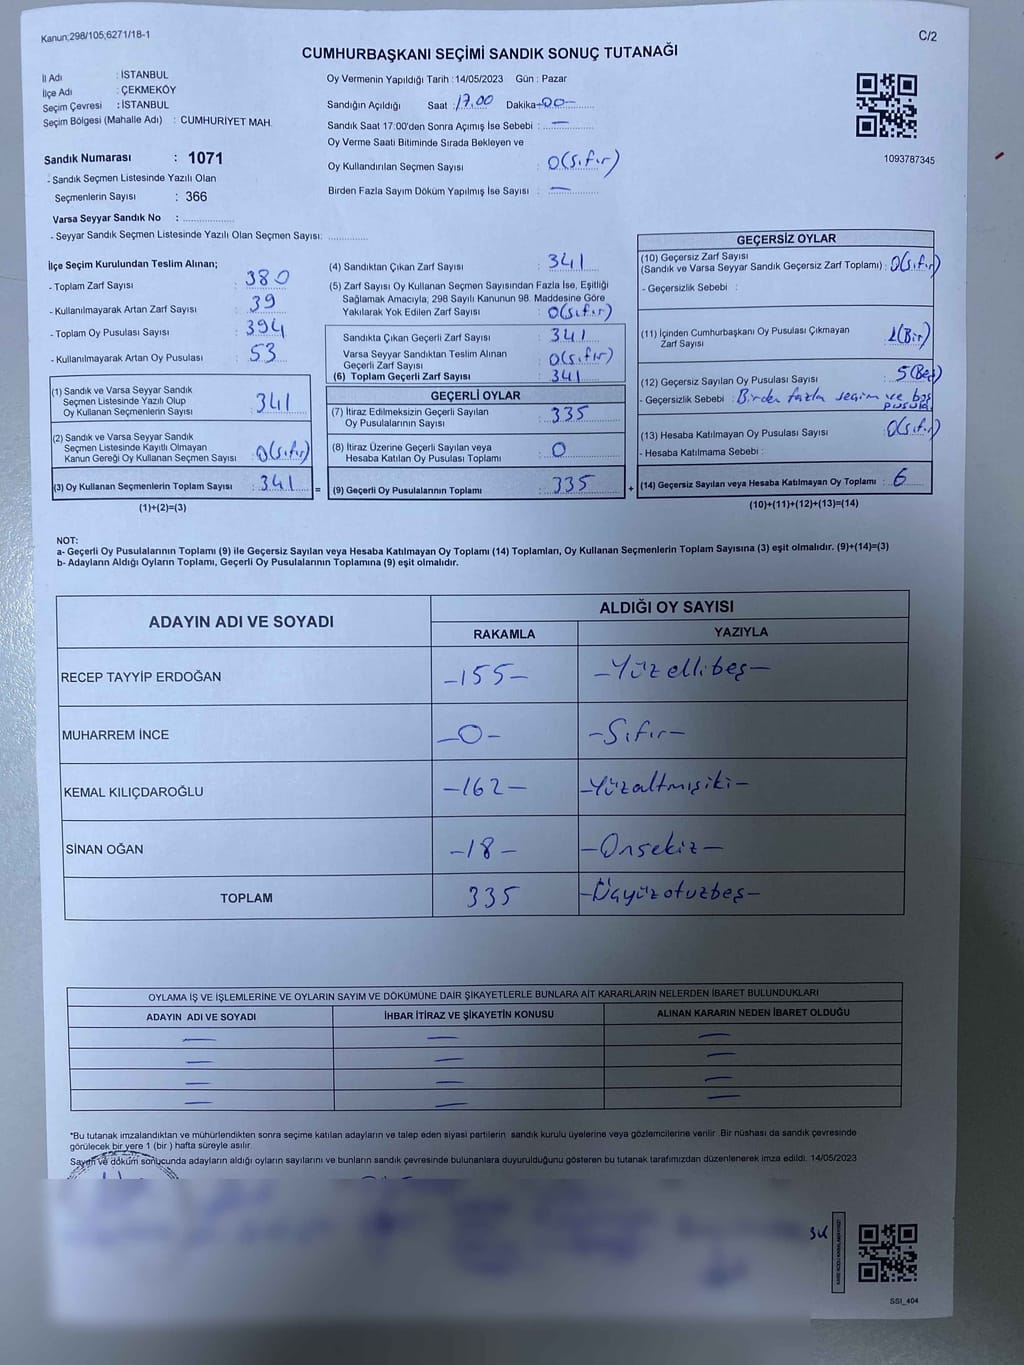 Kanun;298/105,6271/18-1
C/2
CUMHURBAŞKANI SEÇİMİ SANDIK SONUÇ TUTANAĞI
İl Adı : İSTANBUL
İlçe Adı : ÇEKMEKÖY
Seçim Çevresi : İSTANBUL
Seçim Bölgesi (Mahalle Adı) : CUMHURİYET MAH.
Sandık Numarası : 1071
- Sandık Seçmen Listesinde Yazılı Olan
Seçmenlerin Sayısı : 366
Varsa Seyyar Sandık No : ..............
- Seyyar Sandık Seçmen Listesinde Yazılı Olan Seçmen Sayısı: ..............
Oy Vermenin Yapıldığı Tarih : 14/05/2023 Gün : Pazar
Sandığın Açıldığı Saat : 17.00 Dakika -00-
Sandık Saat 17:00'den Sonra Açımış İse Sebebi : —
Oy Verme Saati Bitiminde Sırada Bekleyen ve
Oy Kullandırılan Seçmen Sayısı : 0(sıfır)
Birden Fazla Sayım Döküm Yapılmış İse Sayısı : —
1093787345
İlçe Seçim Kurulundan Teslim Alınan;
- Toplam Zarf Sayısı : 380
- Kullanılmayarak Artan Zarf Sayısı : 39
- Toplam Oy Pusulası Sayısı : 394
- Kullanılmayarak Artan Oy Pusulası : 53
(1) Sandık ve Varsa Seyyar Sandık
Seçmen Listesinde Yazılı Olup
Oy Kullanan Seçmenlerin Sayısı : 341
(2) Sandık ve Varsa Seyyar Sandık
Seçmen Listesinde Kayıtlı Olmayan
Kanun Gereği Oy Kullanan Seçmen Sayısı : 0(sıfır)
(3) Oy Kullanan Seçmenlerin Toplam Sayısı : 341 =
(1)+(2)=(3)
(4) Sandıktan Çıkan Zarf Sayısı : 341
(5) Zarf Sayısı Oy Kullanan Seçmen Sayısından Fazla İse, Eşitliği
Sağlamak Amacıyla; 298 Sayılı Kanunun 98. Maddesine Göre
Yakılarak Yok Edilen Zarf Sayısı : 0(sıfır)
Sandıkta Çıkan Geçerli Zarf Sayısı : 341
Varsa Seyyar Sandıktan Teslim Alınan
Geçerli Zarf Sayısı : 0(sıfır)
(6) Toplam Geçerli Zarf Sayısı : 341
GEÇERLİ OYLAR
(7) İtiraz Edilmeksizin Geçerli Sayılan
Oy Pusulalarının Sayısı : 335
(8) İtiraz Üzerine Geçerli Sayılan veya
Hesaba Katılan Oy Pusulası Toplamı : 0
(9) Geçerli Oy Pusulalarının Toplamı : 335 +
GEÇERSİZ OYLAR
(10) Geçersiz Zarf Sayısı
(Sandık ve Varsa Seyyar Sandık Geçersiz Zarf Toplamı) : 0(sıfır)
- Geçersizlik Sebebi :
(11) İçinden Cumhurbaşkanı Oy Pusulası Çıkmayan
Zarf Sayısı : 1(Bir)
(12) Geçersiz Sayılan Oy Pusulası Sayısı : 5(Beş)
- Geçersizlik Sebebi : Birden fazla seçim ve boş
pusula
(13) Hesaba Katılmayan Oy Pusulası Sayısı : 0(sıfır)
- Hesaba Katılmama Sebebi :
(14) Geçersiz Sayılan veya Hesaba Katılmayan Oy Toplamı : 6
(10)+(11)+(12)+(13)=(14)
NOT:
a- Geçerli Oy Pusulalarının Toplamı (9) ile Geçersiz Sayılan veya Hesaba Katılmayan Oy Toplamı (14) Toplamları, Oy Kullanan Seçmenlerin Toplam Sayısına (3) eşit olmalıdır. (9)+(14)=(3)
b- Adayların Aldığı Oyların Toplamı, Geçerli Oy Pusulalarının Toplamına (9) eşit olmalıdır.
ADAYIN ADI VE SOYADI
ALDIĞI OY SAYISI
RAKAMLA YAZIYLA
RECEP TAYYİP ERDOĞAN -155- -Yüzellibeş-
MUHARREM İNCE -0- -Sıfır-
KEMAL KILIÇDAROĞLU -162- -Yüzaltmışiki-
SİNAN OĞAN -18- -Onsekiz-
TOPLAM 335 -Üçyüzotuzbeş-
OYLAMA İŞ VE İŞLEMLERİNE VE OYLARIN SAYIM VE DÖKÜMÜNE DAİR ŞİKAYETLERLE BUNLARA AİT KARARLARIN NELERDEN İBARET BULUNDUKLARI
ADAYIN ADI VE SOYADI İHBAR İTİRAZ VE ŞİKAYETİN KONUSU ALINAN KARARIN NEDEN İBARET OLDUĞU
— — —
— — —
— — —
— — —
*Bu tutanak imzalandıktan ve mühürlendikten sonra seçime katılan adayların ve talep eden siyasi partilerin sandık kurulu üyelerine veya gözlemcilerine verilir. Bir nüshası da sandık çevresinde
görülecek bir yere 1 (bir ) hafta süreyle asılır.
Sayım ve döküm sonucunda adayların aldığı oyların sayılarını ve bunların sandık çevresinde bulunanlara duyurulduğunu gösteren bu tutanak tarafımızdan düzenlenerek imza edildi. 14/05/2023
SSI_404